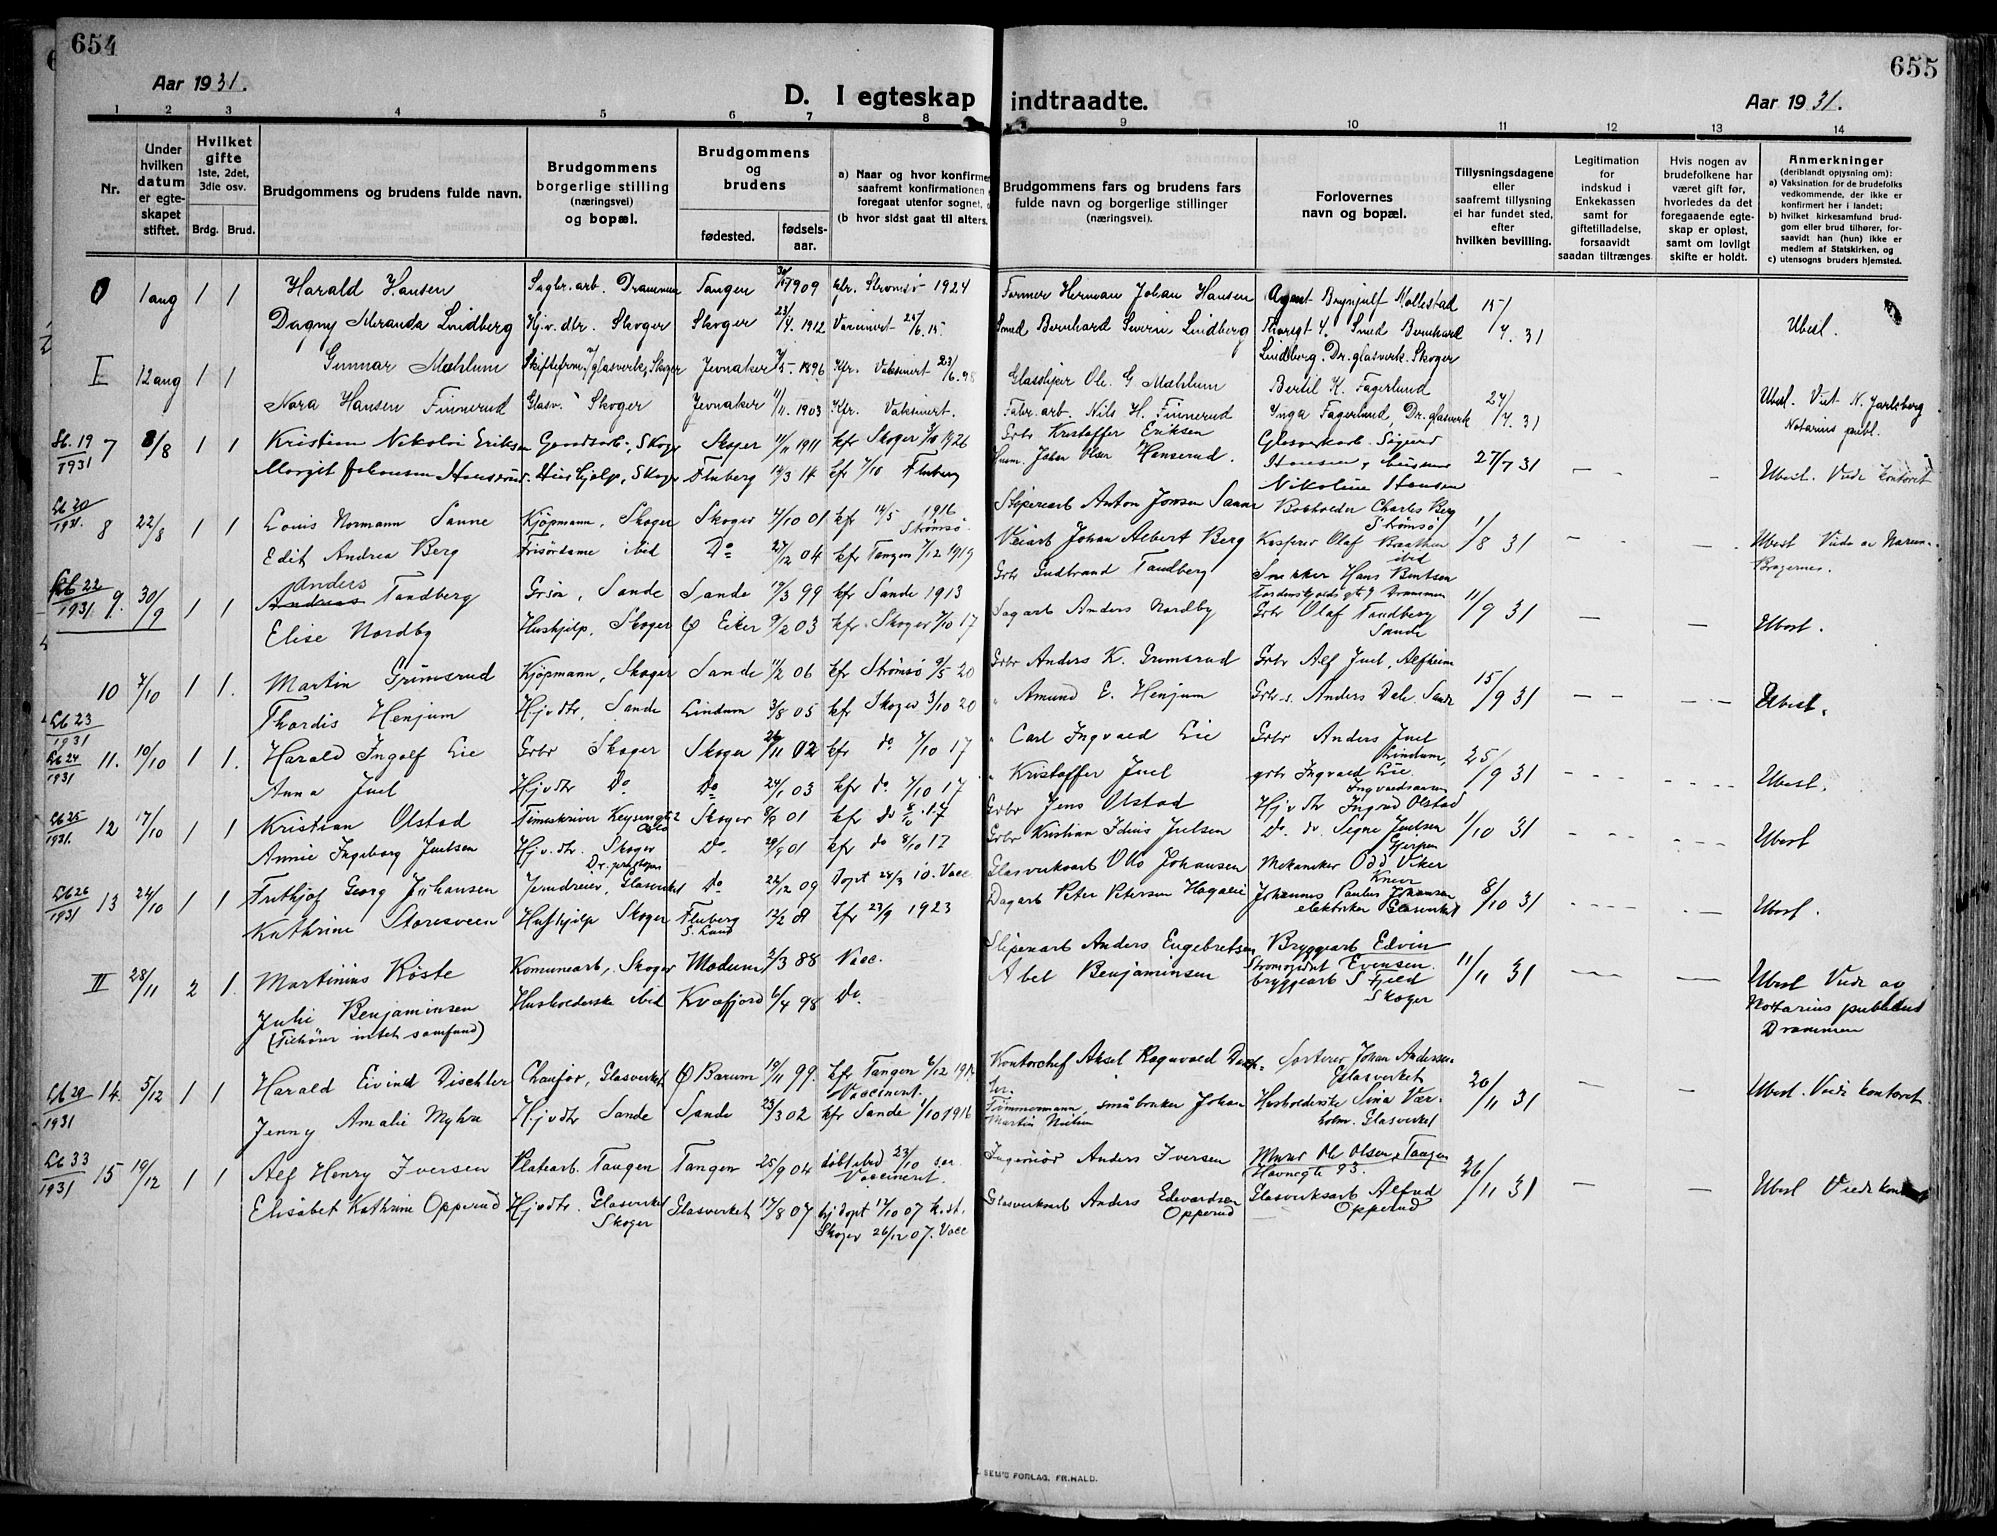 654
655
Aar 1931.
D. I egteskap indtraadte.
Aar 1931.
1 2 3 4 5 6 7 8 9 10 11 12 13 14
Nr.
Under hvilken datum er egteskapet stiftet.
Hvilket gifte 1ste, 2det, 3die osv.
Brdg. Brud.
Brudgommens og brudens fulde navn.
Brudgommens borgerlige stilling (næringsvei) og bopæl.
Brudgommens og brudens
fødested. fødselsaar.
a) Naar og hvor konfirme
saafremt konfirmationen
foregaat utenfor sognet,
(b hvor sidst gaat til alters.
Brudgommens fars og brudens fars fulde navn og borgerlige stillinger (næringsvei).
Forlovernes navn og bopæl.
Tillysningsdagene eller saafremt tillysning ei har fundet sted, efter hvilken bevilling.
Legitimation for indskud i Enkekassen samt for giftetilladelse, forsaavidt saadan tiltrænges.
Hvis nogen av brudefolkene har været gift før, hvorledes da det foregaaende egteskap er opløst, samt om lovligt skifte er holdt.
Anmerkninger (deriblandt opjysning om): a) Vaksination for de brudefolks vedkommende, der ikke er konfirmert her i landet; b) hvilket kirkesamfund brudgom eller brud tilhører, forsaavidt han (hun) ikke er medlem af Statskirken, og c) utensogns bruders hjemsted.
0 1 aug 1 1 Harald Hansen Sagbr. arb. Drammen Tangen 1909 Strømsø 1924 Former Herman Johan Hansen Agent Brynjulf Mollestad 31 Ubesl.
Dagny Meranda Lindberg Hj.v. dtr. Skoger Skoger 23/4. 1912 Vaksinert Smed Bernhard Severin Lindberg Smed Bernhard
Lindberg. Dr. glasverk. Skoger
I 12 aug 1 1 Gunnar Mæhlum glasverk, Skoger Jevnaker 1896 Kfr. Vaksinert 23/6. 98 Glassliper Ole. G. Mæhlum Bertil K. Fagerlund 27/7. 31 Ubesl. Viet N. Jarlsberg
Nora Hansen Finnerud Glasv. Skoger Jevnaker 11/11. 1903 Kfr. Vaksinert. Fabr. arb. Nils H. Finnerud Inga Fagerlund, Dr. glasverk Notarius publ.
Lb. 19/1931 7 8/8 1 1 Kristian Nikolai Eriksen Gaardsarb., Skoger Skoger 11/11 1911 kfr Skoger 3/10 1926 Grbr Kristoffer Eriksen Glasverkarb. Sigurd 27/7 31 — — Ubesl. Viede kontoret
Margit Johansen Hønserud Hushjelp, Skoger Fluberg 14/3 14 kfr 7/10 Fluberg Husm. Johan Olsen Hønserud. Hansen,
Nikoline Hansen
Lb 20/1931. 8 22/8 1 1 Louis Normann Sanne Kjøpmann, Skoger Skoger 4/10 01 kfr 14/5 1916 Strømsø. Sliperarb Anton Jonsen Sanne Charles Berg Strømsø 1/8 31 — — Ubesl
Edit Andrea Berg Frisørdame ibid Do 27/12 04 kfr Tangen 7/12 1919 Veiarb Johan Albert Berg Kasserer Olaf Braathen ibid Bragernes.
Lb 22/1931 9. 30/9 1 1 Anders Tandberg Grsøn, Sande Sande 19/3 99 kfr Sande 1913 Gbr Gudbrand Tandberg Snekker Hans Bentsen Drammen 11/9 31 — — Ubesl.
Elise Nordby Hushjelp, Skoger Ø Eiker 9/2 03 kfr. Skoger 7/10 17 Sagarb Anders Nordby Gbr Olaf Tandberg Sande
Lb 23/1931 10 7/10 1 1. Martin Grimsrud Kjøpmann, Skoger Sande 11/2 06 kfr Strømsø 9/5 20 Gbr Anders K. Grimsrud Gbr Alf Juel, Alfheim 15/9 31 — — Ubesl.
Thordis Henjum Hjvdtr, Sande Lindum 3/8 05 kfr Skoger 3/10 20 " Amund E. Henjum Gbr. s. Anders Dal. Sande
Lb 24/1931 11. 10/10 1 1. Harald Ingolf Lie Gbr Skoger Skoger 26/11 02 kfr do 7/10 17 " Carl Ingvald Lie Gbr Anders Juel Lindum, 25/9 31 Ubesl.
Anna Juel Hjvdtr Do Do 24/1 03 kfr do. 7/10 17 " Kristoffer Juel gbr Ingvald Lie. Ingvaldsaasen
Lb 25/1931. 12 17/10 1 1 Kristian Olstad Timeskriver Keysersgt 2 Oslo Skoger 8/9 01 kfr do 8/10 .17 Gbr Jens Olstad Hjvdtr Ingrid Olstad 1/10 31 Ubesl
Annie Ingeborg Juelsen Hj.v.dtr. Skoger Do. 29/9 01 kfr do 8/10 17 Gbr Kristian Idius Juelsen Do. do. Signe Juelsen Gjerpen
Lb 26/1931 13 24/10 1 1 Frithjof Georg Johansen Jerndreier, Glasverket Do 22/12 09 Døpt 28/3 10. Vacc Glasverksarb Otto Johansen Mekaniker Odd Viker 8/10 31 Ubesl.
Kathrine Storesveen Hushjelp Skoger Fluberg S. Land 12/2 08 kfr 23/9 1923 Dagarb Peter Petersen Hagalie Johannes Paulus Johansen elektriker Glasverket
II 28/11 2 1 Martinius Røste Komunearb, Skoger Modum 2/3 88 Vacc. Sliperiarb Anders Engebretsen Bryggearb Edvin Evensen. 11/11 31 Ubesl Viede av
Julie Benjaminsen Husholderske ibid Kvæfjord 6/4 98 Do. Abel Benjaminsen bryggearb S Fjeld Skoger Notarius publicus
(Tilhører intet samfund) Drammen
Lb 29/1931 14. 5/12 1 1 Harald Eivind Dischler Chaufør, Glasverket Ø Bærum 19/11 99. kfr Tangen 6/12 Vaccinert. Kontorchef Aksel Ragnvald Sorterer Johan Andersen Glasverket 20/11 31 — — Ubesl. Viede kontoret.
Jenny Amalie Myhre Hjvdtr Sande Sande 23/3 02 kfr Sande 1/10 1916 Tømmermann, småbruker Johan Martin Nielsen Husholderske Sina Værholm. Glasverket
Lb 33/1931 15 19/12 1 1 Alf Henry Iversen Platearb. Tangen Tangen 25/9 04 døbt ibid 23/10 s.a. Vaccinert. Ingeniør Anders Iversen Murer Ole Olsen, Tangen Havnegt 93. 26/11 31 — — Ubesl Viede kontoret
Elisabet Kathrine Opperud Hjvdtr. Glasverket Skoger Glasverket 17/8 07 hj døpt 17/10 07 k.st. Skoger 26/12 07. Vacc Glasverksarb Anders Edvardsen Opperud Glasverksarb Alfred Opperud
SEM'S FORLAG, FR.HALD.